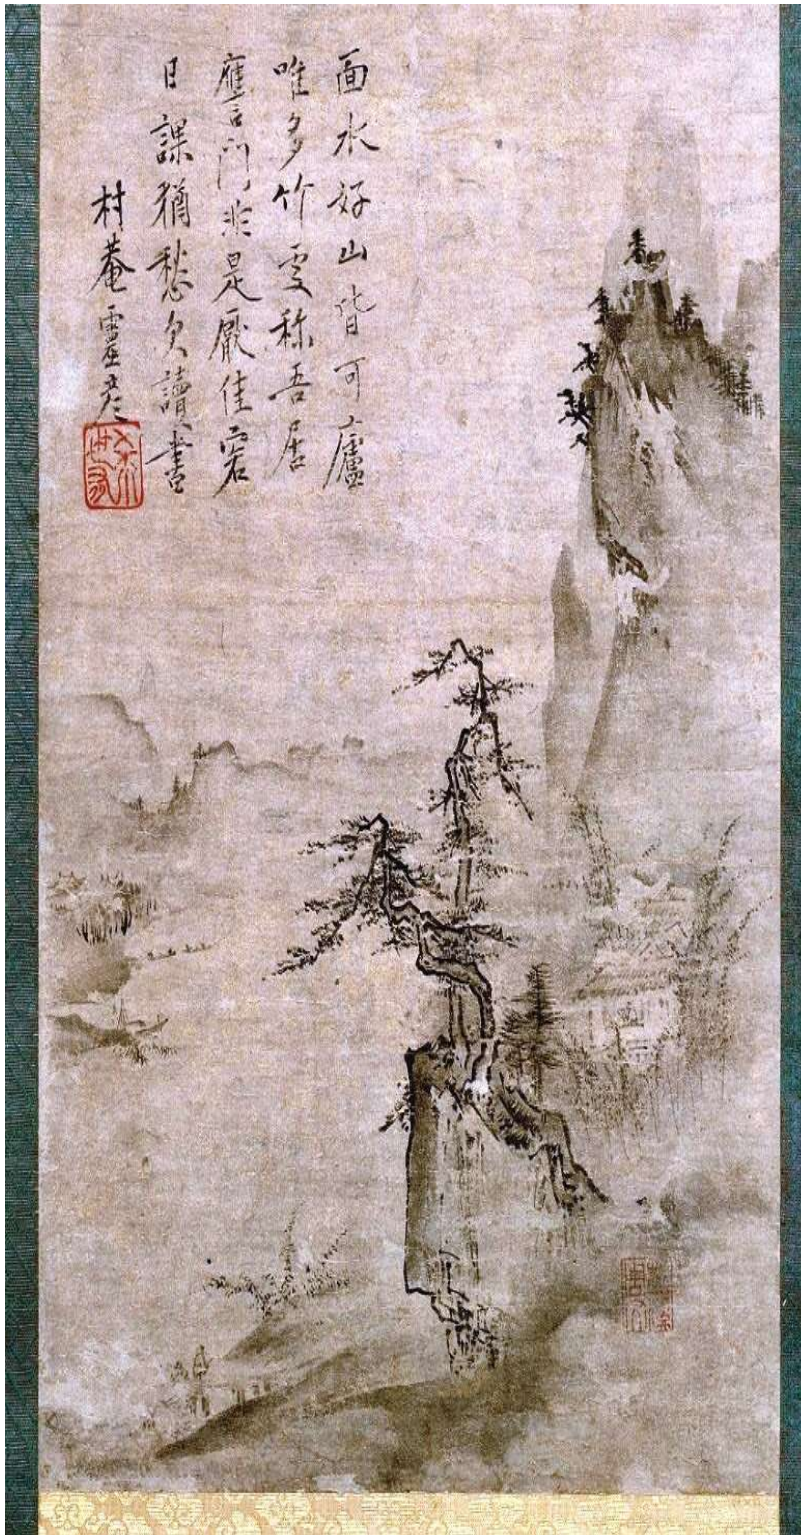 面水好山皆可廬
唯多竹處稱吾居
譍門非是厭佳客
日課猶愁欠讀書
村菴靈彦